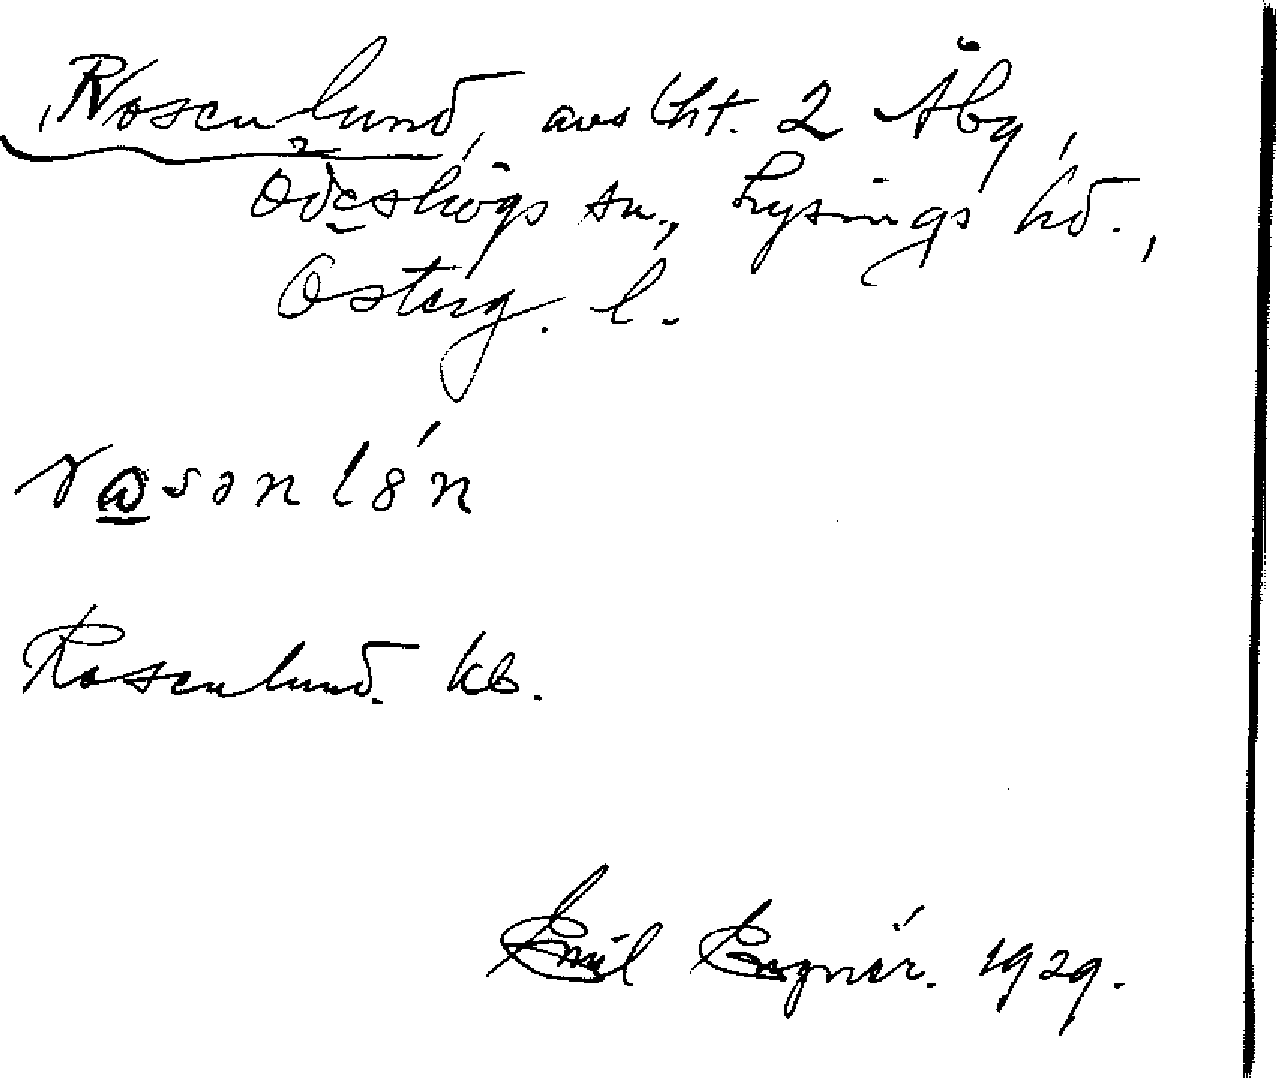 Rosenlund, avs lht. 2 Åby,
Ödeshögs sn., Lysings hd.,
Österg. l.
Rosenlund. kb.
Emil 1929.